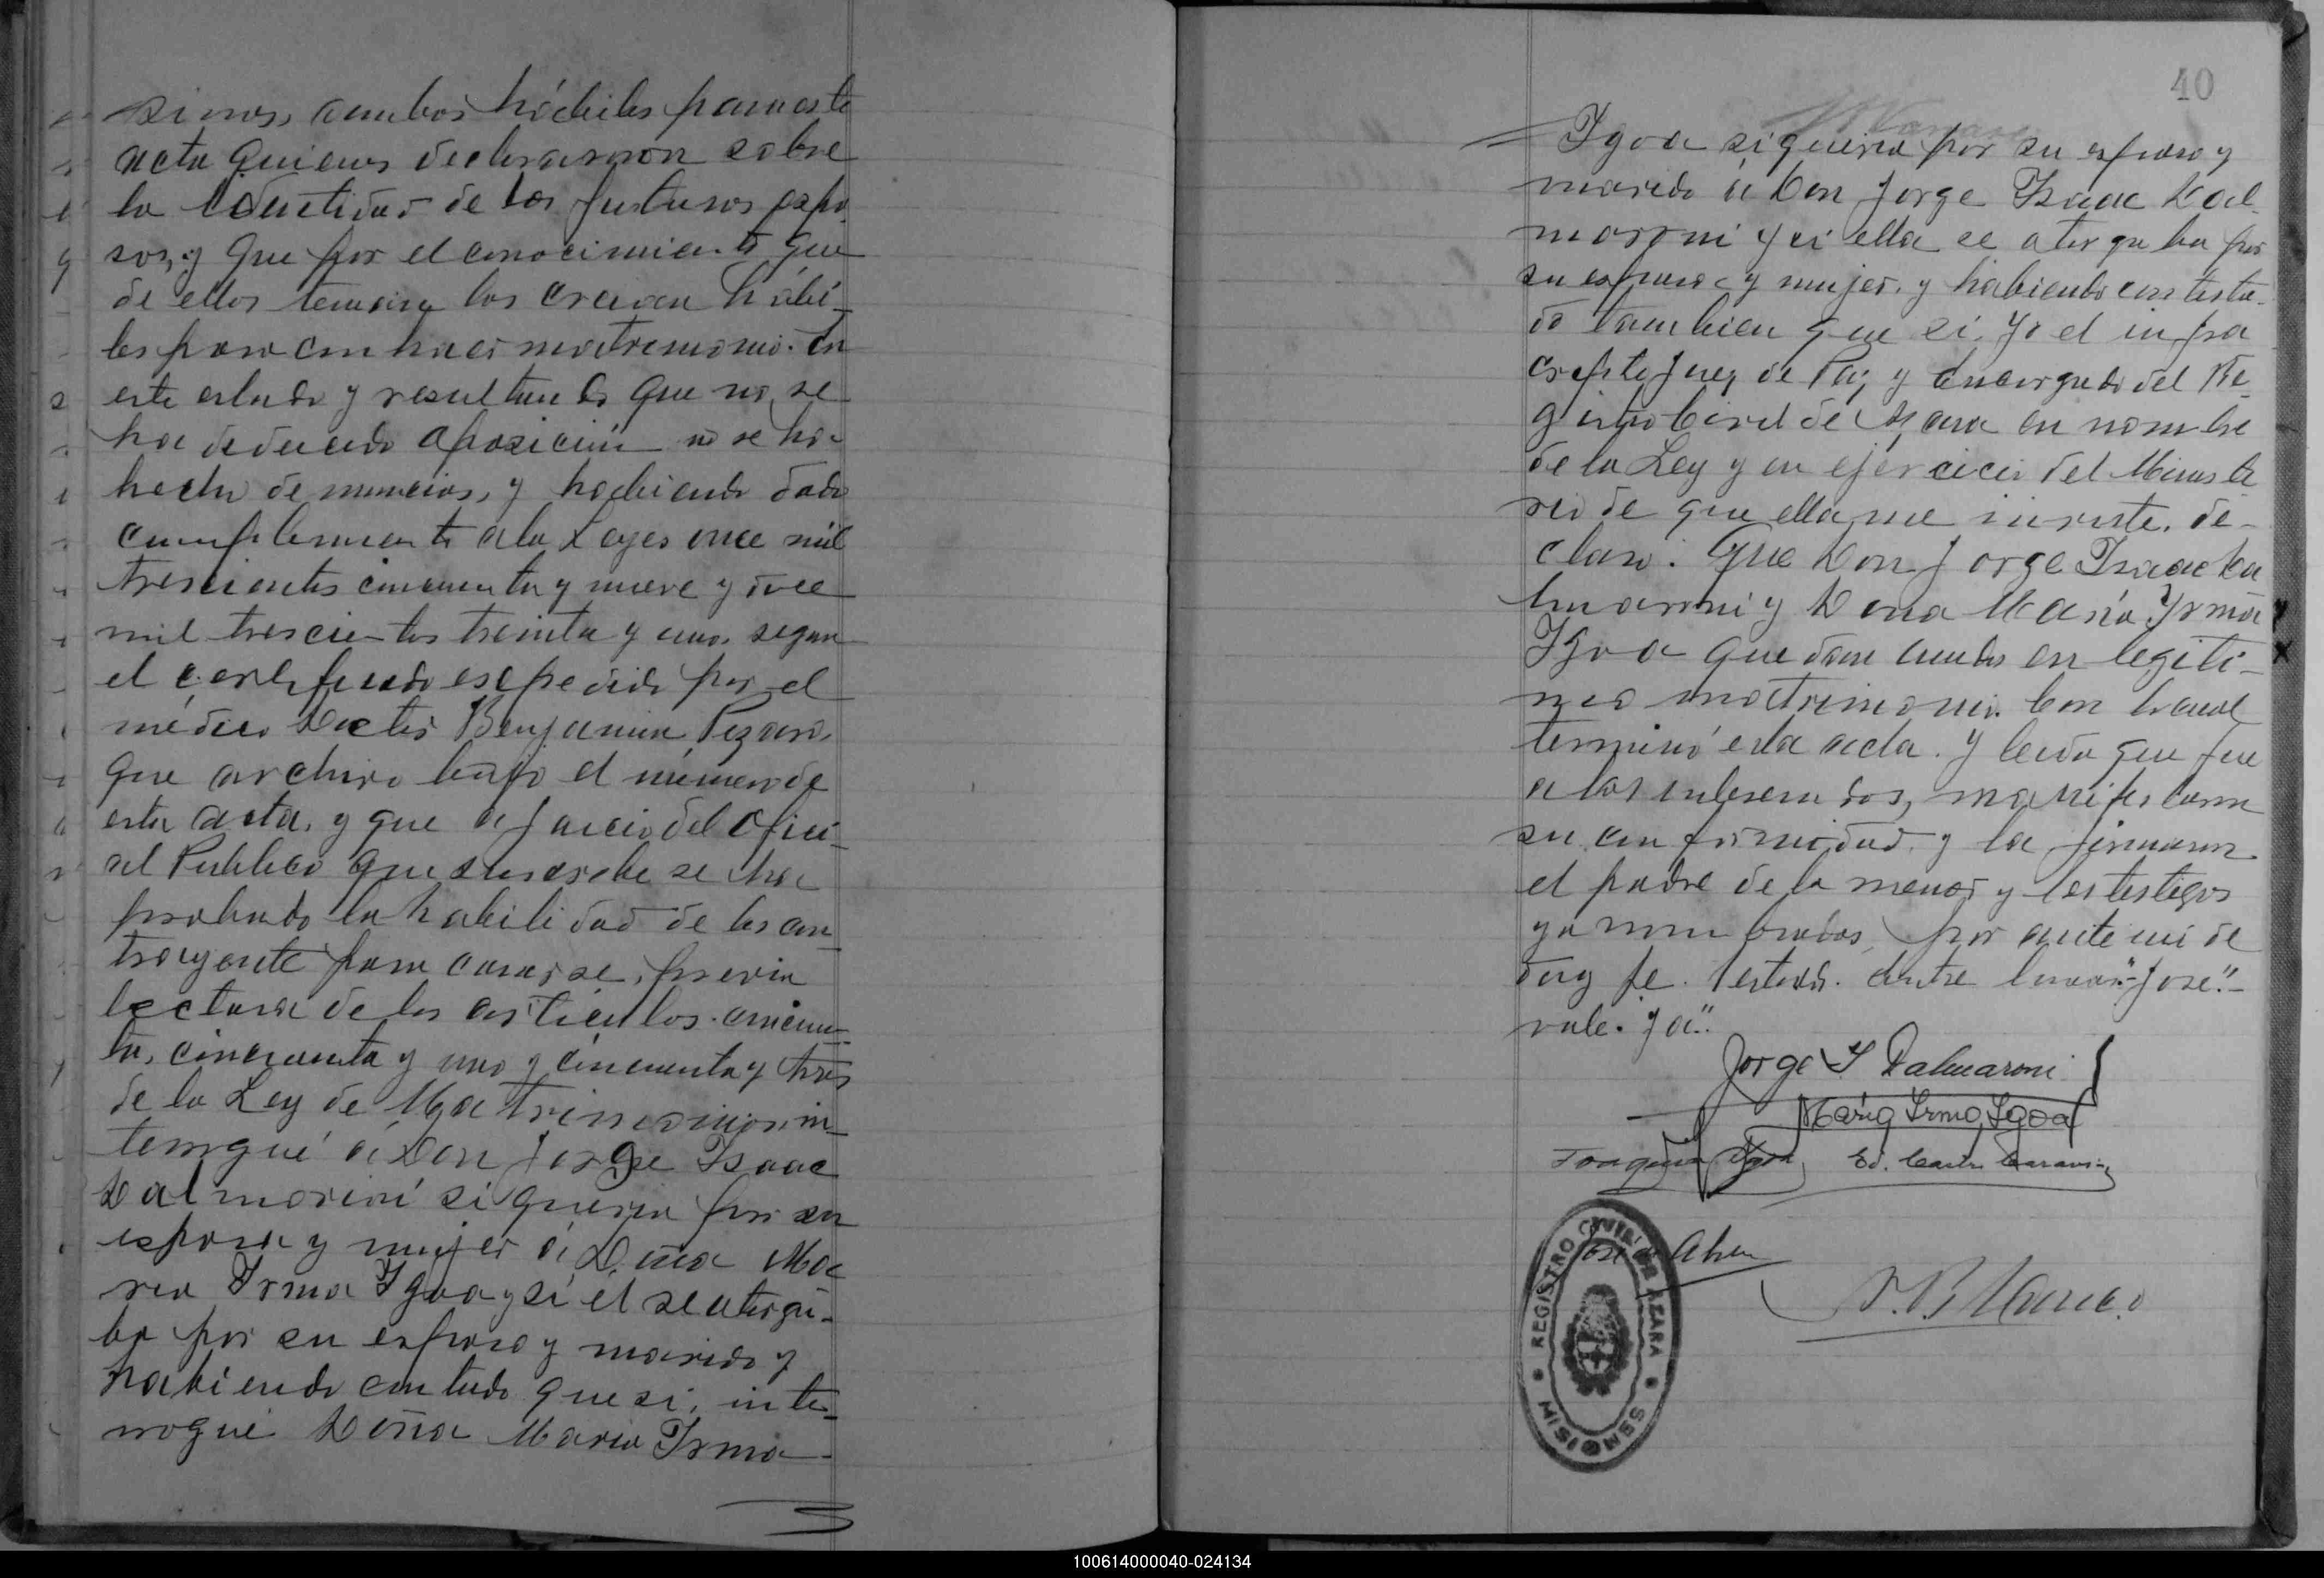 sinos, ambos hábiles para este
acto quienes declararon sobre
la identidad de los futuros espo
sos, y que por el conocimiento que
de ellos tenían los creian hábi-
les para contraer matrimonio. En
este estado y resultando que no se
ha deducido oposición no se ha
hecho denuncias, y habiendo dado
cumplimiento a la Leyes once mil
trescientos cincuenta y nueve y doce
mil trescientos treinta y uno, segun
el certificado espedido por el
médico Doctor Benjamin
que archivo bajo el número de
esta acta, y que a juicio del Ofici-
al Publico que suscribe se ha
probado la habilidad de los con
trayente para casarse, previa
lectura de los artículos cincuen-
ta, cincuenta y uno y cincuenta y tres
de la Ley de Matrimonios, in-
terrogué á Don Jorge Isaac
Dalmaroni si queria por su
esposa y mujer á Doña Ma
ria Irma Igoa y si él se otorga-
ba por su esposo y marido y
habiendo contado que si, inte-
rrogué Doña Maria Irma
40
Igoa si queria por su esposo y
marido á Don Jorge Isaac Dal-
maroni y si ella se otorgaba por
su esposa y mujer, y habiendo contesta-
do tambien que si, yo el infra
cripto Juez de Paz y Encargado del Re-
gistro Civil de Azara en nombre
de la Ley y en ejercicio del Ministe
rio de que ella me inviste, de-
claro: Que Don Jorge Isaac Da
lmaroni y Dona María Irma
Igoa quedan unidos en legíti-
mo matrimonio. Con lo cual
terminó esta acta. Y leida que fue
a los interesados, manifestaron
su conformidad y la firmaron
el padre de la menor y los testigos
ya nombrados, por ante mi de
doy fe. Testado. Entre lineas: "Jose".-
vale.
Jorge I Dalmaroni
María Irma Igoa
Joaquin Igoa
REGISTRO CIVIL DE AZARA
MISIONES
100614000040-024134